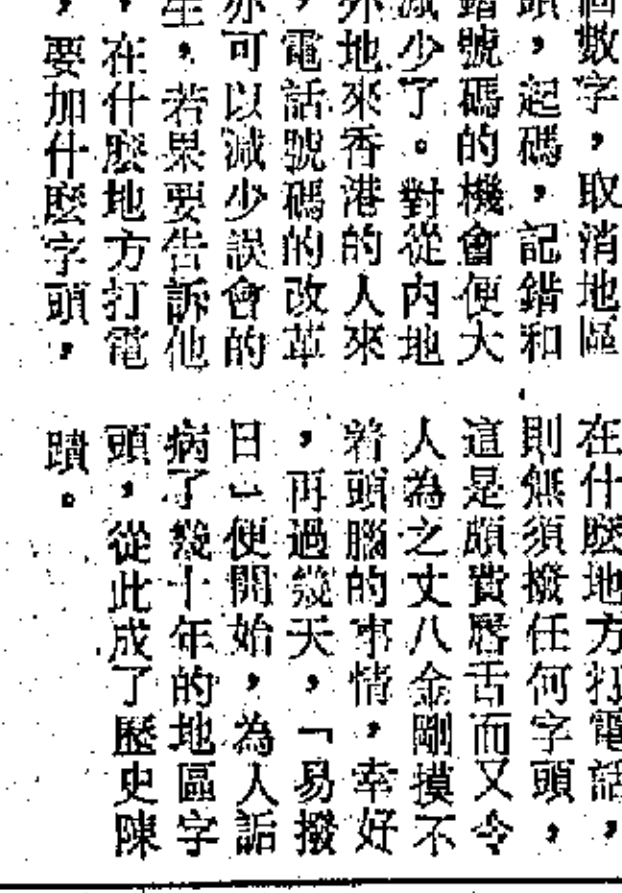 個數字，取消地區
頭，起碼，記錯和
錯號碼的機會便大
減少了。對從內地
外地來香港的人來
，電話號碼的改革
亦可以減少誤會的
生，若果要告訴他
，在什麼地方打電
，要加什麼字頭，
在什麼地方打電話，
則無須撥任何字頭，
這是頗費唇舌而又令
人為之丈八金剛摸不
着頭腦的事情，幸好
，再過幾天，「易撥
日」便開始，為人詬
病了幾十年的地區字
頭，從此成了歷史陳
蹟。